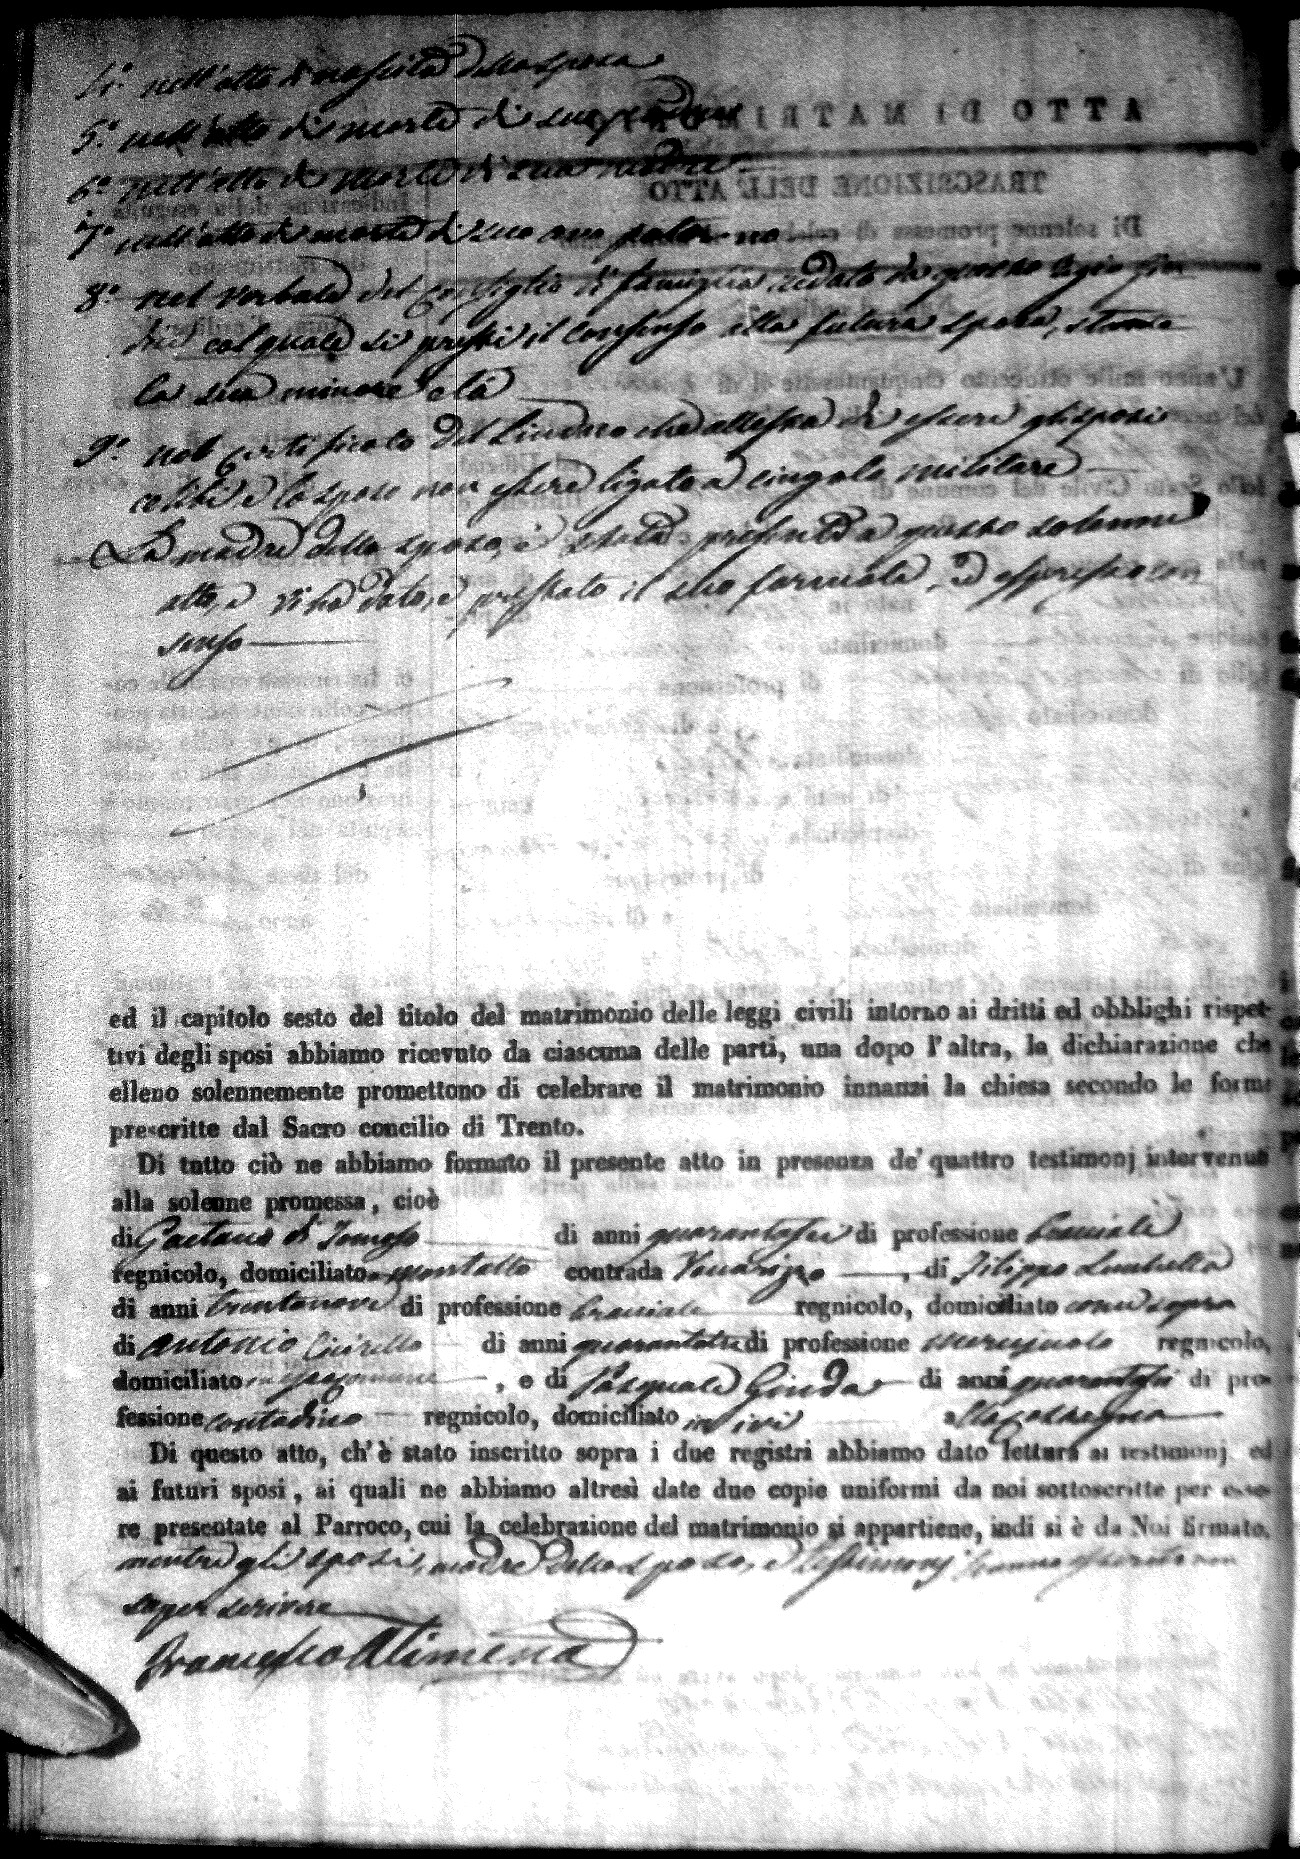 4.° nell'atto di nascita della sposa
5.° nell'atto di morte di suo padre
6.° nell'atto di morte di sua madre
7.° nell'atto di morte di suo avo paterno
8.° nel verbale del Consiglio di famiglia redatto da questo Regio Giu
dice col quale si prestò il consenso alla futura sposa, stante
la sua minore età
9.° nel certificato del Sindaco che attesta di essere gli sposi
celibi e lo sposo non essere ligato a cingolo militare
La madre dello sposo, è stata presente a questo solenne
atto, e vi ha dato, e prestato il suo formale, ed espresso con
senso
ed il capitolo sesto del titolo del matrimonio delle leggi civili intorno ai dritti ed obblighi rispet-
tivi degli sposi abbiamo ricevuto da ciascuna delle parti, una dopo l'altra, la dichiarazione che
elleno solennemente promettono di celebrare il matrimonio innanzi la chiesa secondo le forme
prescritte dal Sacro concilio di Trento.
Di tutto ciò ne abbiamo formato il presente atto in presenza de' quattro testimonj intervenuti
alla solenne promessa, cioè
di Gaetano di Tomaso di anni quarantasei di professione bracciale
regnicolo, domiciliato Montalto contrada , di Filippo
di anni trentanove di professione bracciale regnicolo, domiciliato come sopra
di Antonio Cirillo di anni di professione regnicolo,
domiciliato , e di Pasquale di anni quarantasei di pro-
fessione contadino regnicolo, domiciliato in ivi
Di questo atto, ch'è stato inscritto sopra i due registri abbiamo dato lettura ai testimonj ed
ai futuri sposi, ai quali ne abbiamo altresì date due copie uniformi da noi sottoscritte per esse-
re presentate al Parroco, cui la celebrazione del matrimonio si appartiene, indi si è da Noi firmato,
mentre gli sposi, madre dello sposo, e testimonj hanno asserito non
saper scrivere
Francesco Alimena